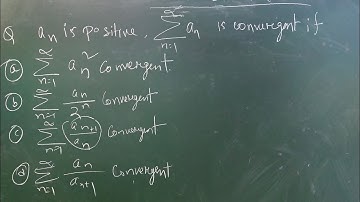 Q aₙ is positive, ∑_{n=1}^{∞} aₙ is convergent if
(a) ∑_{n=1}^{∞} aₙ² Convergent.
(b) ∑_{n=1}^{∞} aₙ/2ⁿ Convergent
(c) ∑_{n=1}^{∞} aₙ₊₁/aₙ Convergent
(d) ∑_{n=1}^{∞} aₙ/aₙ₊₁ Convergent